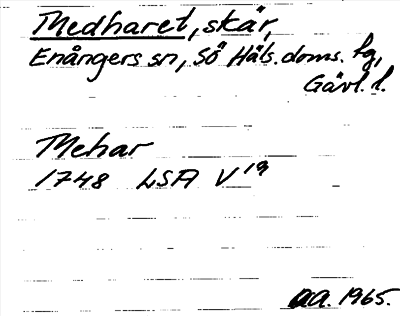 Medharet, skär,
Enångers sn, Sö Häls. doms. fg,
Gävl. l.
Mehar
1748 LSA V 19
AA. 1965.